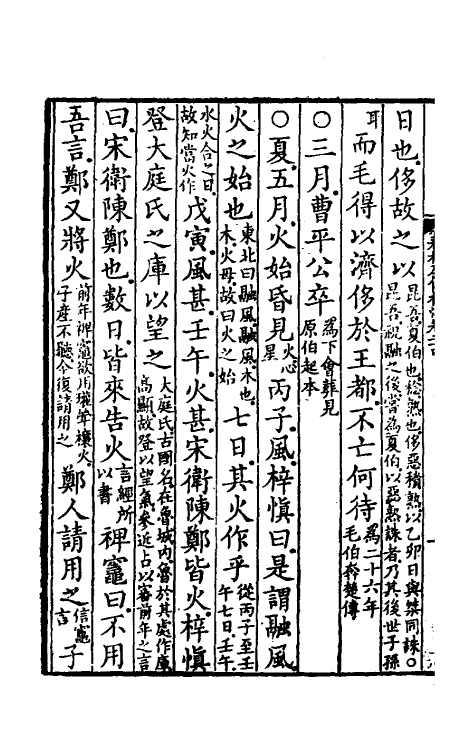 日也侈故之以昆吾夏伯也稔熟也侈惡積熟以乙卯日與桀同誅○昆吾祝融之後嘗為夏伯以惡熟誅者乃其後世子孫
耳而毛得以濟侈於王都不亡何待為二十六年毛伯奔楚傳
○三月曹平公卒為下會葬見原伯起本
○夏五月火始昏見火心星丙子風梓慎曰是謂融風
火之始也東北曰融風融風木也木火母故曰火之始七日其火作乎從丙子至壬午七日壬午
水火合之日故知當火作戊寅風甚壬午火甚宋衛陳鄭皆火梓慎
登大庭氏之庫以望之大庭氏古國名在魯城內魯於其處作庫高顯故登以望氣參近占以審前年之言
曰宋衛陳鄭也數日皆來告火言經所以書裨竈曰不用
吾言鄭又將火前年裨竈欲用瓘斝禳火子產不聽今復請用之鄭人請用之信竈言子